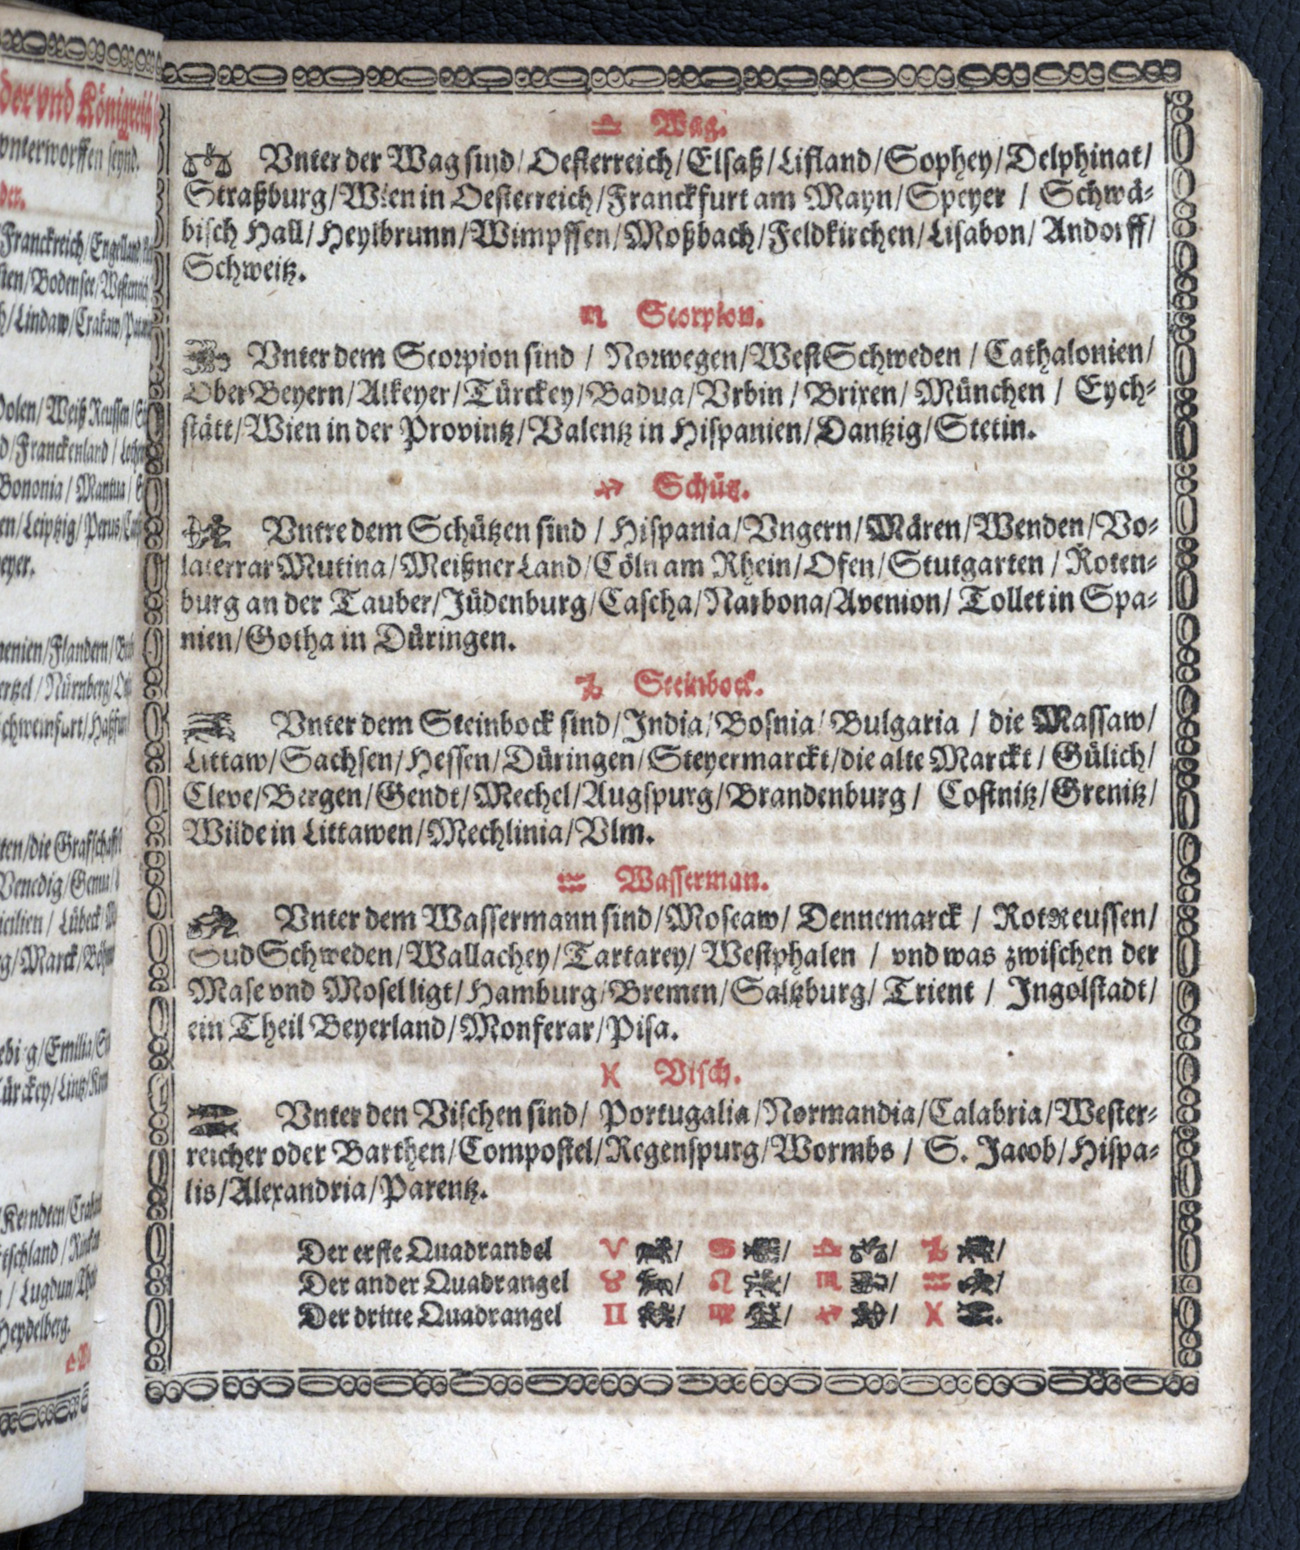 der vnd Königreich
vnterworffen seynd.
der.
Franckreich/Engelland
Bodensee/
Lindaw/Crakaw/
Polen/Weiß Reussen/
Franckenland/
Bononia/Mantua/
Leiptzig/
eyer.
Flandern/
Nürnberg/
Schweinfurt/
die Grafschafft
Venedig/Genua/
Lübeck
Marck/
Emilia/
Türckey/Lintz/
Kerndten/
Lugdun/
Heydelberg.
♎ Wag.
Vnter der Wag sind/Oesterreich/Elsaß/Lifland/Sophey/Delphinat/
Straßburg/Wien in Oesterreich/Franckfurt am Mayn/Speyer / Schwä-
bisch Hall/Heylbrunn/Wimpffen/Moßbach/Feldkirchen/Lisabon/Andorff/
Schweitz.
♏ Scorpion.
Vnter dem Scorpion sind / Norwegen/WestSchweden / Cathalonien/
OberBeyern/Alkeyer/Türckey/Badua/Vrbin / Brixen/ München / Eych-
stätt/Wien in der Provintz/Valentz in Hispanien/Dantzig/Stetin.
♐ Schütz.
Vntre dem Schützen sind / Hispania/Vngern/Mären/Wenden/Vo-
laterrar Mutina/Meißner Land/Cöln am Rhein/Ofen/Stutgarten / Roten-
burg an der Tauber/Jüdenburg/Cascha/Narbona/Avenion/ Tollet in Spa-
nien/Gotha in Düringen.
♑ Steinbock.
Vnter dem Steinbock sind/India/Bosnia/Bulgaria / die Massaw/
Littaw/Sachsen/Hessen/Düringen/Steyermarckt/die alte Marckt / Gülich/
Cleve/Bergen/Gendt/Mechel/Augspurg/Brandenburg / Costnitz/Grenitz/
Wilde in Littawen/Mechlinia/Vlm.
♒ Wasserman.
Vnter dem Wassermann sind/Moscaw/ Dennemarck / RotReussen/
SudSchweden/Wallachey/Tartarey/ Westphalen / vnd was zwischen der
Mase vnd Mosel ligt/Hamburg/Bremen/Saltzburg/ Trient / Ingolstadt/
ein Theil Beyerland/Monferar/Pisa.
♓ Visch.
Vnter den Vischen sind/ Portugalia/Normandia/Calabria/Wester-
reicher oder Barthen/Compostel/Regenspurg/Wormbs / S. Jacob/Hispa-
lis/Alexandria/Parentz.
Der erste Quadrandel ♈ / ♋ / ♎ / ♑ /
Der ander Quadrangel ♉ / ♌ / ♏ / ♒ /
Der dritte Quadrangel ♊ / ♍ / ♐ / ♓ .